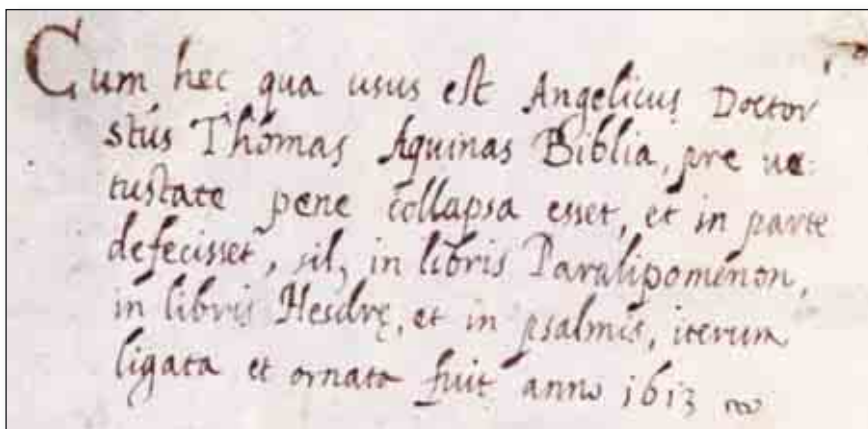 Cum hec qua usus est Angelicus Doctor
stús Thomas Aquinas Biblia, pre ve:
tustate pene collapsa esset, et in parte
defecisset, sil, in libris Paralipomenon,
in libris Hesdrę, et in psalmis, iterum
ligata et ornata fuit anno 1613